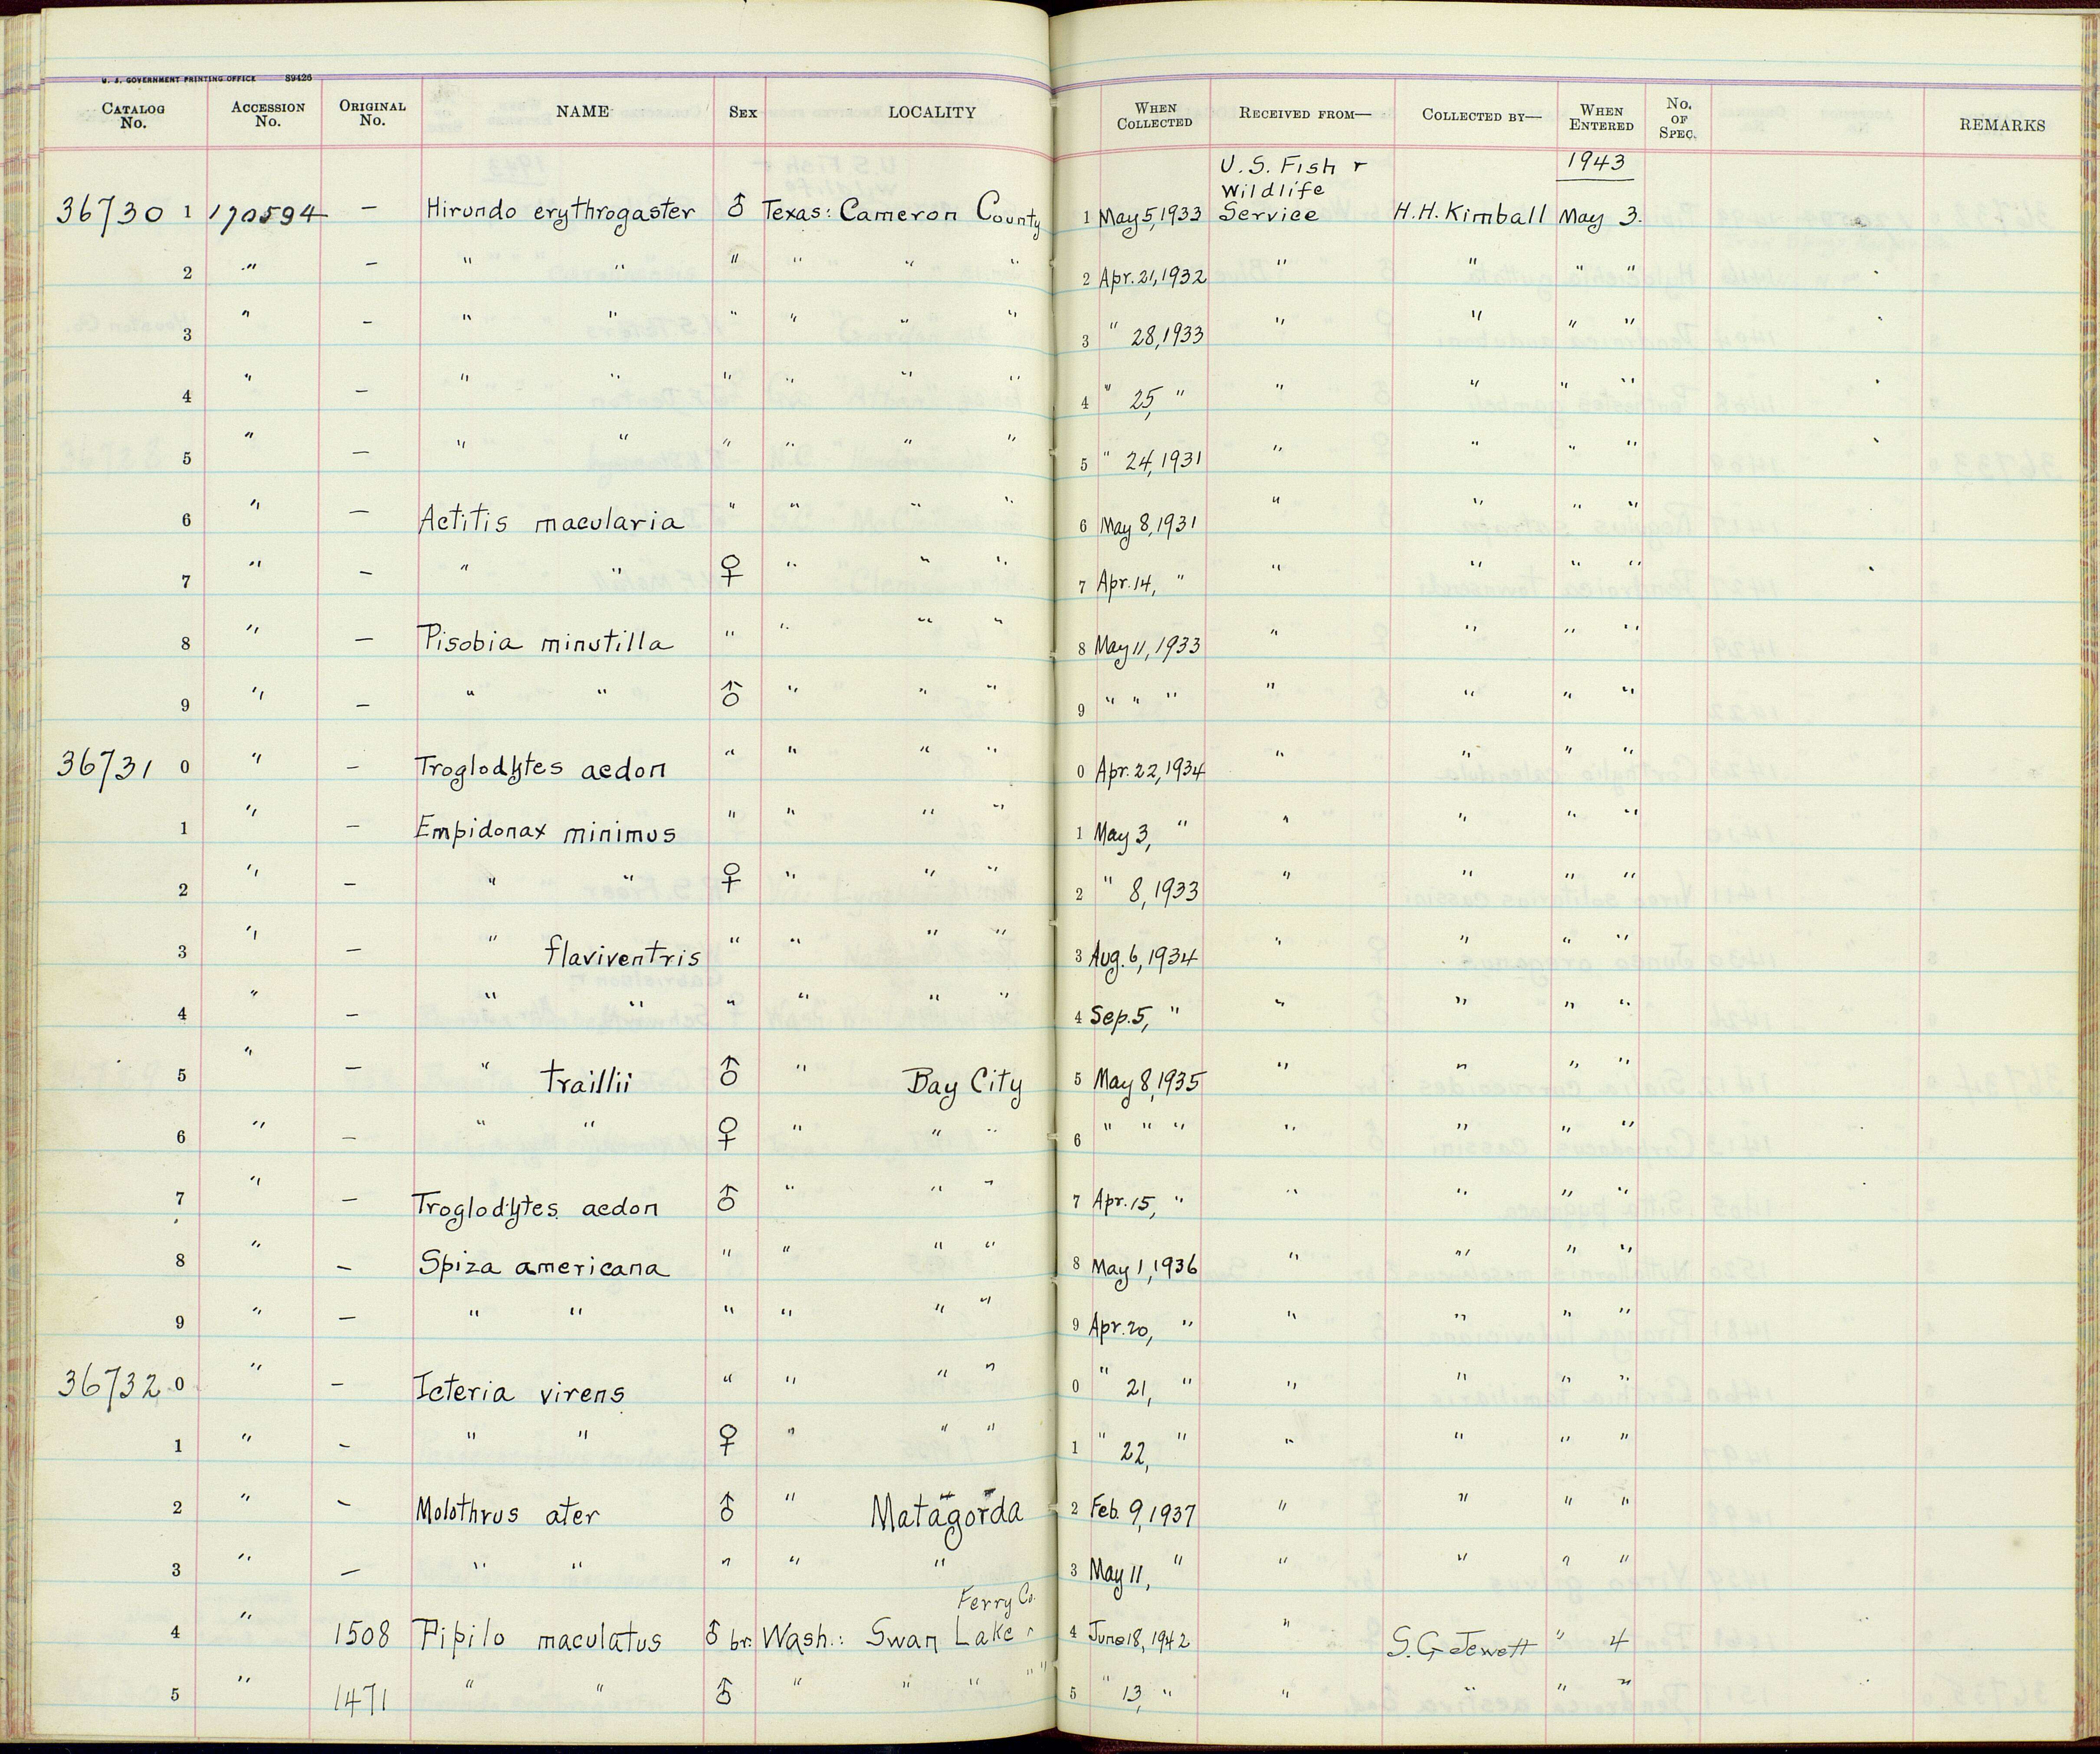 U. S. GOVERNMENT PRINTING OFFICE 89426
CATALOG No. ACCESSION No. ORIGINAL No. NAME SEX LOCALITY WHEN COLLECTED RECEIVED FROM— COLLECTED BY— WHEN ENTERED No. OF SPEC. REMARKS
U.S. Fish & Wildlife Service 1943
36730 1 170594 — Hirundo erythrogaster ♂ Texas: Cameron County 1 May 5, 1933 H.H. Kimball May 3.
2 " — " " " " " " 2 Apr. 21, 1932 " " " "
3 " — " " " " " " 3 " 28, 1933 " " " "
4 " — " " " " " " 4 " 25, " " " " "
5 " — " " " " " " 5 " 24, 1931 " " " "
6 " — Actitis macularia " " " " 6 May 8, 1931 " " " "
7 " — " " ♀ " " " 7 Apr. 14, " " " " "
8 " — Pisobia minutilla " " " " 8 May 11, 1933 " " " "
9 " — " " ♂ " " " 9 " " " " " " "
36731 0 " — Troglodytes aedon " " " " 0 Apr. 22, 1934 " " " "
1 " — Empidonax minimus " " " " 1 May 3, " " " " "
2 " — " " ♀ " " " 2 " 8, 1933 " " " "
3 " — " flaviventris " " " " 3 Aug. 6, 1934 " " " "
4 " — " " " " " " 4 Sep. 5, " " " " "
5 " — " traillii ♂ " Bay City 5 May 8, 1935 " " " "
6 " — " " ♀ " " " 6 " " " " " " "
7 " — Troglodytes aedon ♂ " " " 7 Apr. 15, " " " " "
8 " — Spiza americana " " " " 8 May 1, 1936 " " " "
9 " — " " " " " " 9 Apr. 20, " " " " "
36732 0 " — Icteria virens " " " " 0 " 21, " " " " "
1 " — " " ♀ " " " 1 " 22, " " " " "
2 " — Molothrus ater ♂ " Matagorda 2 Feb. 9, 1937 " " " "
3 " — " " " " " 3 May 11, " " " " "
Ferry Co.
4 " 1508 Pipilo maculatus ♂ br. Wash.: Swan Lake 4 June 18, 1942 " S.G Jewett " 4
5 " 1471 " " ♂ " " " " " 5 " 13, " " " " "